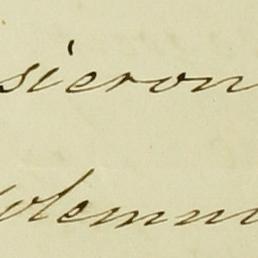 sieron
olemni